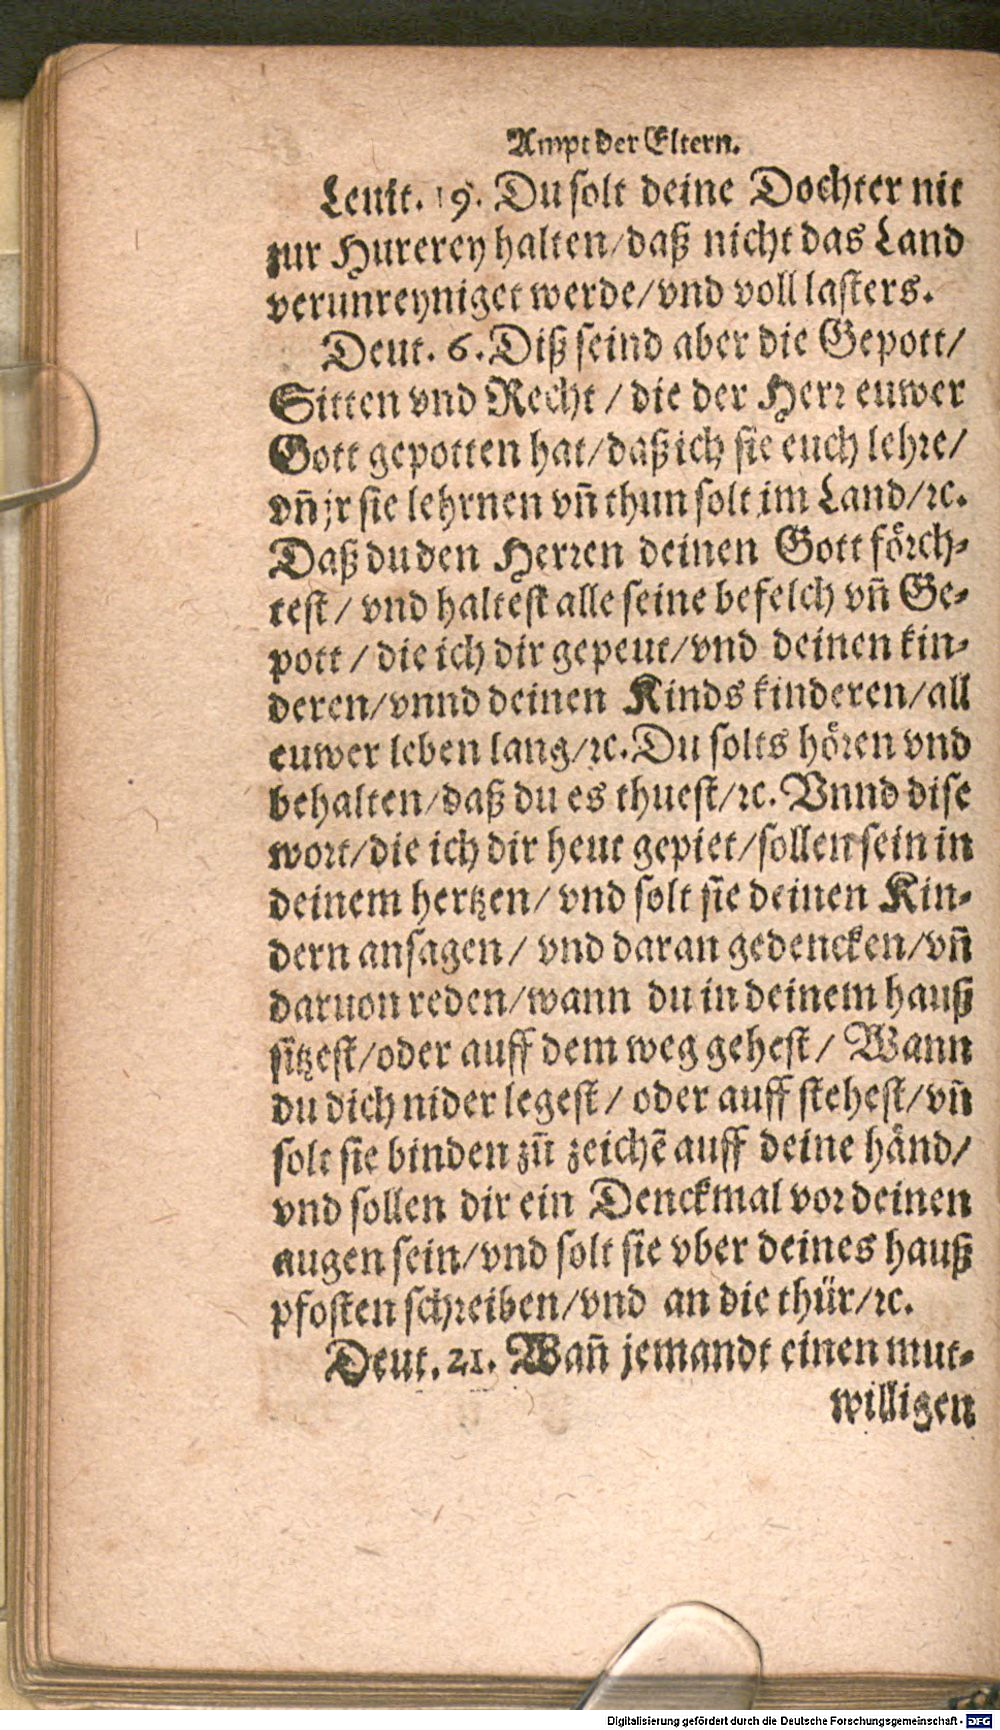 Ampt der Eltern.
Leuit. 19. Du solt deine Dochter nit
zur Hurerey halten/daß nicht das Land
verunreyniget werde/vnd voll lasters.
Deut. 6. Diß seind aber die Gepott/
Sitten vnd Recht / die der Herr euwer
Gott gepotten hat/daß ich sie euch lehre/
vñ jr sie lehrnen vñ thun solt im Land/ꝛc.
Daß du den Herren deinen Gott förch-
test / vnd haltest alle seine befelch vñ Ge-
pott / die ich dir gepeut/vnd deinen kin-
deren/vnnd deinen Kinds kinderen/all
euwer leben lang/ꝛc. Du solts hören vnd
behalten/daß du es thuest/ꝛc. Vnnd dise
wort/die ich dir heut gepiet/sollen sein in
deinem hertzen/ vnd solt sie deinen Kin-
dern ansagen / vnd daran gedencken/vñ
daruon reden/wann du in deinem hauß
sitzest/oder auff dem weg gehest / Wann
du dich nider legest / oder auff stehest/vñ
solt sie binden zũ zeichẽ auff deine händ/
vnd sollen dir ein Denckmal vor deinen
augen sein/vnd solt sie vber deines hauß
pfosten schreiben/vnd an die thür/ꝛc.
Deut. 21. Wañ jemandt einen mut-
willigen
Digitalisierung gefördert durch die Deutsche Forschungsgemeinschaft - DFG